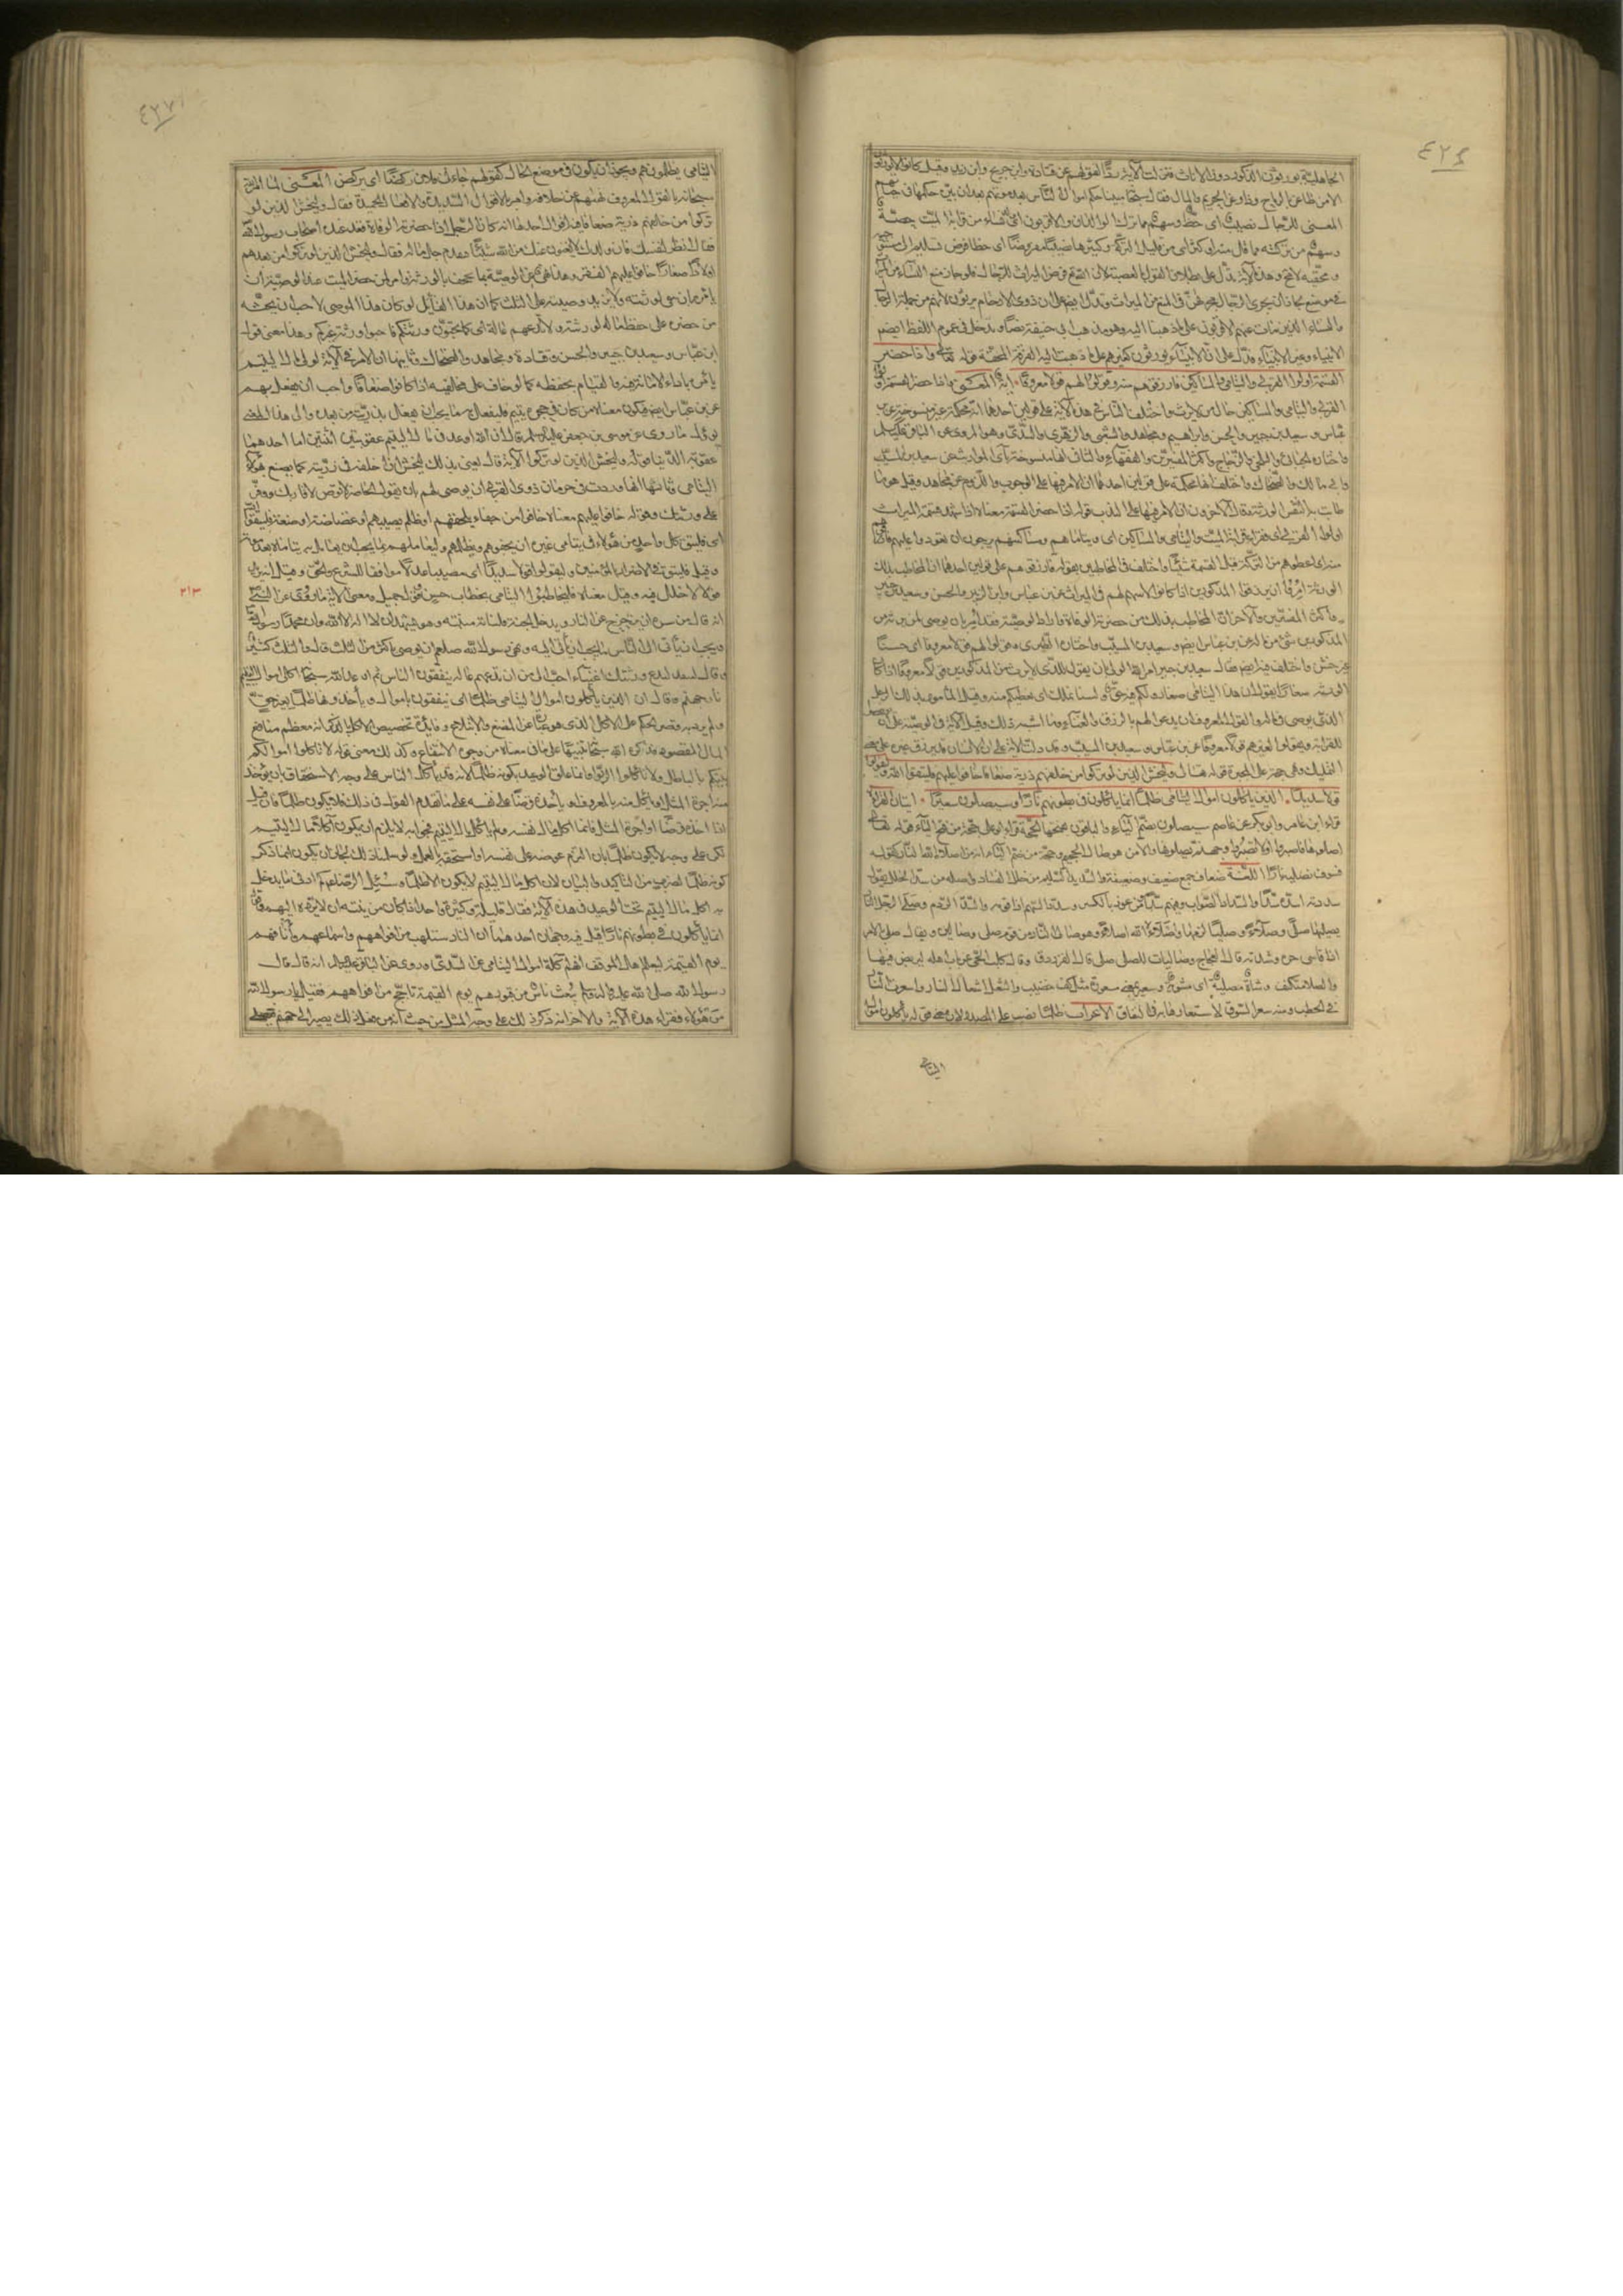 ٤٢٦
الجاهلية يورثون الذكور دون الاناث فنزلت الآية ردا لقولهم عن قتادة وابن جريج وابن زيد وقيل كانوا لا يورثون
الا من طاعن بالرماح وذاد عن الحريم والمال فقال سبحانه مبينا حكم اموال الناس بعد موتهم بعد ان بين حكمها في حال حياتهم
المعنى للرجال نصيب اى حظ وسهم مما ترك الوالدان والاقربون اى وللنساء من قرابة الميت حصة
وسهم من تركته مما قل منه او كثر اى من قليل التركة وكثيرها نصيبا مفروضا اى حظا فرض تسليمه الى مستحقيه
ومحقيه لا محة وهذه الآية تدل على بطلان القول بالعصبة لان الله تعالى فرض الميراث للرجال فلو جاز منع النساء من الميراث
في موضع لجاز ان يجرى الرجال مجراهن في المنع من الميراث وتدل ايضا على ان ذوى الارحام يرثون لانهم من جملة الرجال
والنساء الذين مات عنهم الاقربون على ما ذهبنا اليه وهو مذهب ابى حنيفة ايضا ويدخل في عموم اللفظ ايضا
الانبياء وغير الانبياء فدل على ان الانبياء يورثون كغيرهم على ما ذهبت اليه الفرقة المحقة قوله تعالى واذا حضر
القسمة اولوا القربى واليتامى والمساكين فارزقوهم منه وقولوا لهم قولا معروفا اية المعنى واذا حضر القسمة اولوا
القربى واليتامى والمساكين حال من لا يرث واختلف الناس في هذه الآية على قولين احدهما انه محكمة غير منسوخة عن ابن
عباس وسعيد بن جبير والحسن وابراهيم ومجاهد والشعبى والزهرى والسدى وهو المروى عن الباقر عليه السلم
واختاره الجبائى والبلخى والزجاج واكثر المفسرين والفقهاء والثانى انها منسوخة بآى المواريث عن سعيد بن المسيب
وابى مالك والضحاك واختلف من قال انها محكمة على قولين احدهما ان الامر فيها على الوجوب واللزوم عن مجاهد وقيل هو ما
طابت به انفس الورثة وقال الآخرون ان الامر فيها على الندب قوله اذا حضر القسمة معناه اذا شهد قسمة الميراث
اولوا القربى اى فقراء قرابة الميت واليتامى والمساكين اى ويتاماهم ومساكينهم يرجون ان تعودوا عليهم فارزقوهم
منه اى اعطوهم من التركة قبل القسمة شيئا واختلف في المخاطبين بقوله فارزقوهم على قولين احدهما ان المخاطب بذلك
الورثة امروا ان يرزقوا المذكورين اذا كانوا لا سهم لهم في الميراث عن ابن عباس وابن الزبير والحسن وسعيد بن جبير
واكثر المفسرين والآخر ان المخاطب بذلك من حضرته الوفاة واراد الوصية فقد امر بان يوصى لمن لا يرثه من
المذكورين بشىء من ماله عن ابن عباس ايضا وسعيد بن المسيب واختاره الطبرى وقولوا لهم قولا معروفا اى حسنا
غير خشن واختلف فيه ايضا فقال سعيد بن جبير امر الله الولى ان يقول للذى لا يرث من المذكورين قولا معروفا اذا كانت
الورثة صغارا يقول ان هذا اليتامى صغار وليس لكم فيه حق ولسنا نملك ان نعطيكم منه وقيل المأمور بذلك الرجل
الذى يوصى في ماله والقول المعروف ان يدعو لهم بالرزق والغناء وما اشبه ذلك وقيل الآية في الوصية على ان يوصوا
للقرابة ويقولوا لغيرهم قولا معروفا عن ابن عباس وسعيد بن المسيب وقد دلت الآية على ان الانسان قد يرزق غيره على معنى
التمليك وهى حجة على المجبرة قوله تعالى وليخش الذين لو تركوا من خلفهم ذرية ضعافا خافوا عليهم فليتقوا الله وليقولوا
قولا سديدا الذين يأكلون اموال اليتامى ظلما انما يأكلون في بطونهم نارا وسيصلون سعيرا ايتان القراءة
قراء ابن عامر وابو بكر عن عاصم سيصلون بضم الياء والباقون بفتحها الحجة قراءة ابو على حجة من فتح الياء قوله تعالى
اصلوها فاصبروا او لا تصبروا وجهنم يصلونها والا من هو صال الجحيم وحجة من ضم الياء انه من اصلاه الله النار كقوله
فسوف نصليه نارا اللغة ضعاف جمع ضعيف وضعيفة والسديد السليم من خلل الفساد واصله من سد الخلل يقول
سددته اسده سدا والسداد الصواب وفيهم سداد من عوز بالكسر وسدد السهم اذا قومه والسد الردم وصلى الرجل النار
يصليها صلى وصلاء وصليا لزمها واصلاه الله اصلاء وهو صال النار من قوم صلى وصالين ويقال صلى الامر
اذا قاسى حره وشدته قال العجاج وصاليات للصلى صلى قال الفرزدق وقاتل كلب الحى عن نار اهله ليربض فيها
والصلا متكنف وشاة مصلية اى مشوية وسعير بمعنى مسعورة مثل كف خضيب والسعر اشعال النار واسعرت النار
في الحطب ومنه سعر السوق لاستعارها به في النفاق الاعراب ظلما نصب على المصدر لان معنى قوله يأكلون اموال
اليتامى
٤٢٧
اليتامى يظلمونهم ويجوز ان يكون في موضع الحال كقولهم جاءنى فلان ركضا اى يركض المعنى لما امر الله
سبحانه بالقول المعروف نهاهم عن خلافه وامر بالاقوال السديدة والافعال الحميدة فقال وليخش الذين لو
تركوا من خلفهم ذرية ضعافا فيه اقوال احدها انه كان الرجل اذا حضرته الوفاة قعد عنده اصحاب رسول الله
فقالوا انظر لنفسك فان ولدك لا يغنون عنك من الله شيئا فيقدم جل ماله فقال وليخش الذين لو تركوا من بعدهم
اولادا صغارا خافوا عليهم الفقر وهذا نهى عن الوصية بما يجحف بالورثة وامر لمن حضر الميت عند الوصية ان
يأمره بان يبقى لورثته ولا يزيد وصيته على الثلث كما ان هذا القائل لو كان هذا الموصى لاحب ان يحثه
من حضره على حفظ ماله لورثته ولا يدعهم عالة اى كما تحبون ورثتكم فاحبوا ورثة غيركم وهذا معنى قول
ابن عباس وسعيد بن جبير والحسن وقتادة ومجاهد والضحاك وثانيها ان الامر في الآية لولى مال اليتيم
يأمره باداء الامانة فيه والقيام بحفظه كما لو خاف على مخلفيه اذا كانوا ضعافا واحب ان يفعل بهم
عن ابن عباس ايضا فيكون معناه من كان في حجره يتيم فليفعل به ما يحب ان يفعل بذريته من بعده والى هذا المعنى
يؤول ما روى عن موسى بن جعفر عليه السلم قال ان الله اوعد في مال اليتيم عقوبتين اثنتين اما احدهما
عقوبة الدنيا قوله وليخش الذين لو تركوا الآية قال يعنى بذلك ليخش ان اخلفه في ذريته كما يصنع بهؤلاء
اليتامى وثالثها انها وردت في حرمان ذوى القربى ان يوصى لهم بان يقول الحاضر لا توص لاقاربك ووفر
على ورثتك وقوله خافوا عليهم معناه خافوا من جفاء يلحقهم او ظلم يصيبهم او غضاضة او ضعة فليتقوا الله
اى فليتق كل واحد من هؤلاء في يتامى غيره ان يجفوهم ويظلمهم وليعاملهم بما يحب ان يعامل به يتاماه بعد موته
وقيل فليتقوا الله في الاضرار بالمؤمنين وليقولوا قولا سديدا اى مصيبا عدلا موافقا للشرع والحق وقيل انه يريد
قولا لا خلل فيه وقيل معناه فليخاطبوا اليتامى بخطاب حسن وقول جميل ومعنى الآية ما روى عن النبى
انه قال من سره ان يزحزح عن النار ويدخل الجنة فليأته منيته وهو يشهد ان لا اله الا الله وان محمدا رسول الله
ويحب ان يأتى الى الناس ما يحب ان يأتى اليه ونهى رسول الله صلعم ان يوصى باكثر من الثلث قال والثلث كثير
وقال لسعد لان تدع ورثتك اغنياء احب الى من ان تدعهم عالة يتكففون الناس ثم اوعد الله سبحانه آكلى اموال اليتيم
نار جهنم وقال ان الذين يأكلون اموال اليتامى ظلما اى ينتفعون باموال ويأخذونها ظلما بغير حق
ولم يرد به قصر الحكم على الاكل الذى هو عبارة عن المضغ والابتلاع وفائدة تخصيص الاكل بالذكر انه معظم منافع
المال المقصودة فذكره الله سبحانه تنبيها على ما في معناه من وجوه الانتفاع وكذلك معنى قوله لا تأكلوا اموالكم
بينكم بالباطل ولا تأكلوا الربوا وانما علق الوعيد بكونه ظلما لانه قد يأكله الناس على وجه الاستحقاق بان يؤخذ
منه اجرة المثل او يأكل منه بالمعروف او يأخذه قرضا على نفسه على ما تقدم القول في ذلك فلا يكون ظلما فان قيل
اذا اخذه قرضا او اجرة المثل فانما اكل مال نفسه ولم يأكل مال اليتيم فجوابه لا يلزم ان يكون آكلا مال اليتيم
لكن على وجه لا يكون ظلما بان الزم عوضه على نفسه او استحقه بالعمل ولو سلمنا ذلك لجاز ان يكون انما ذكر
كونه ظلما لضرب من التأكيد والبيان لان اكل مال اليتيم لا يكون الا ظلما وسئل الرضا عليه السلم كم ادنى ما يدخل
به آكل مال اليتيم تحت الوعيد في هذه الآية فقال قليله وكثيره واحد اذا كان من نيته ان لا يرده اليهم وقوله
انما يأكلون في بطونهم نارا قيل فيه وجهان احدهما ان النار ستلهب من افواههم واسماعهم وآنافهم
يوم القيمة ليعلم اهل الموقف انهم آكلة اموال اليتامى عن السدى وروى عن الباقر عليه السلم انه قال قال
رسول الله صلى الله عليه وآله وسلم يبعث ناس من قبورهم يوم القيمة تأجج من افواههم فقيل يا رسول الله
من هؤلاء فقراء هذه الآية والآخر انه ذكر ذلك على وجه المثل من حيث ان من فعل ذلك يصير الى جهنم فتمتلى
٣١٣